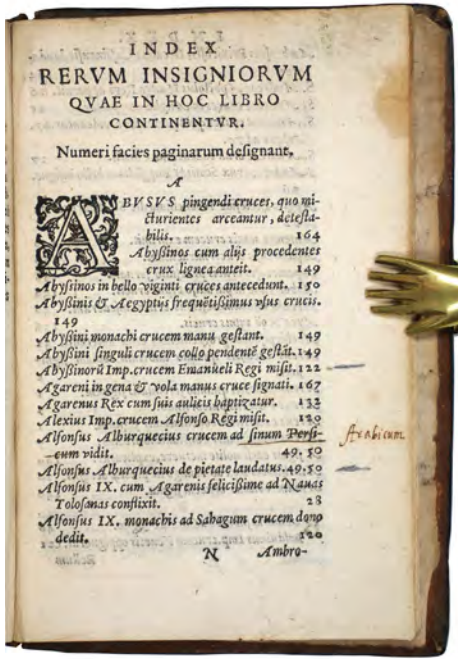 INDEX
RERVM INSIGNIORVM
QVAE IN HOC LIBRO
CONTINENTVR.
Numeri facies paginarum deſignant.
A
ABVSVS pingendi cruces, quo mi-
cturientes arceantur, deteſta-
bilis. 164
Abyßinos cum alijs procedentes
crux lignea anteit. 149
Abyßinos in bello viginti cruces antecedunt. 150
Abyßinis & Aegyptijs frequētißimus vſus crucis.
149
Abyßini monachi crucem manu geſtant. 149
Abyßini ſinguli crucem collo pendentē geſtāt. 149
Abyßinorū Imp. crucem Emanueli Regi miſit. 122
Agareni in gena & vola manus cruce ſignati. 167
Agarenus Rex cum ſuis aulicis baptizatur. 132
Alexius Imp. crucem Alfonſo Regi miſit. 120
Alfonſus Alburquecius crucem ad ſinum Perſi- Arabicum
cum vidit. 49. 50
Alfonſus Alburquecius de pietate laudatus. 49. 50
Alfonſus IX. cum Agarenis feliciſſime ad Nauas
Toloſanas conflixit. 28
Alfonſus IX. monachis ad Sahagum crucem dono
dedit. 120
N Ambro-